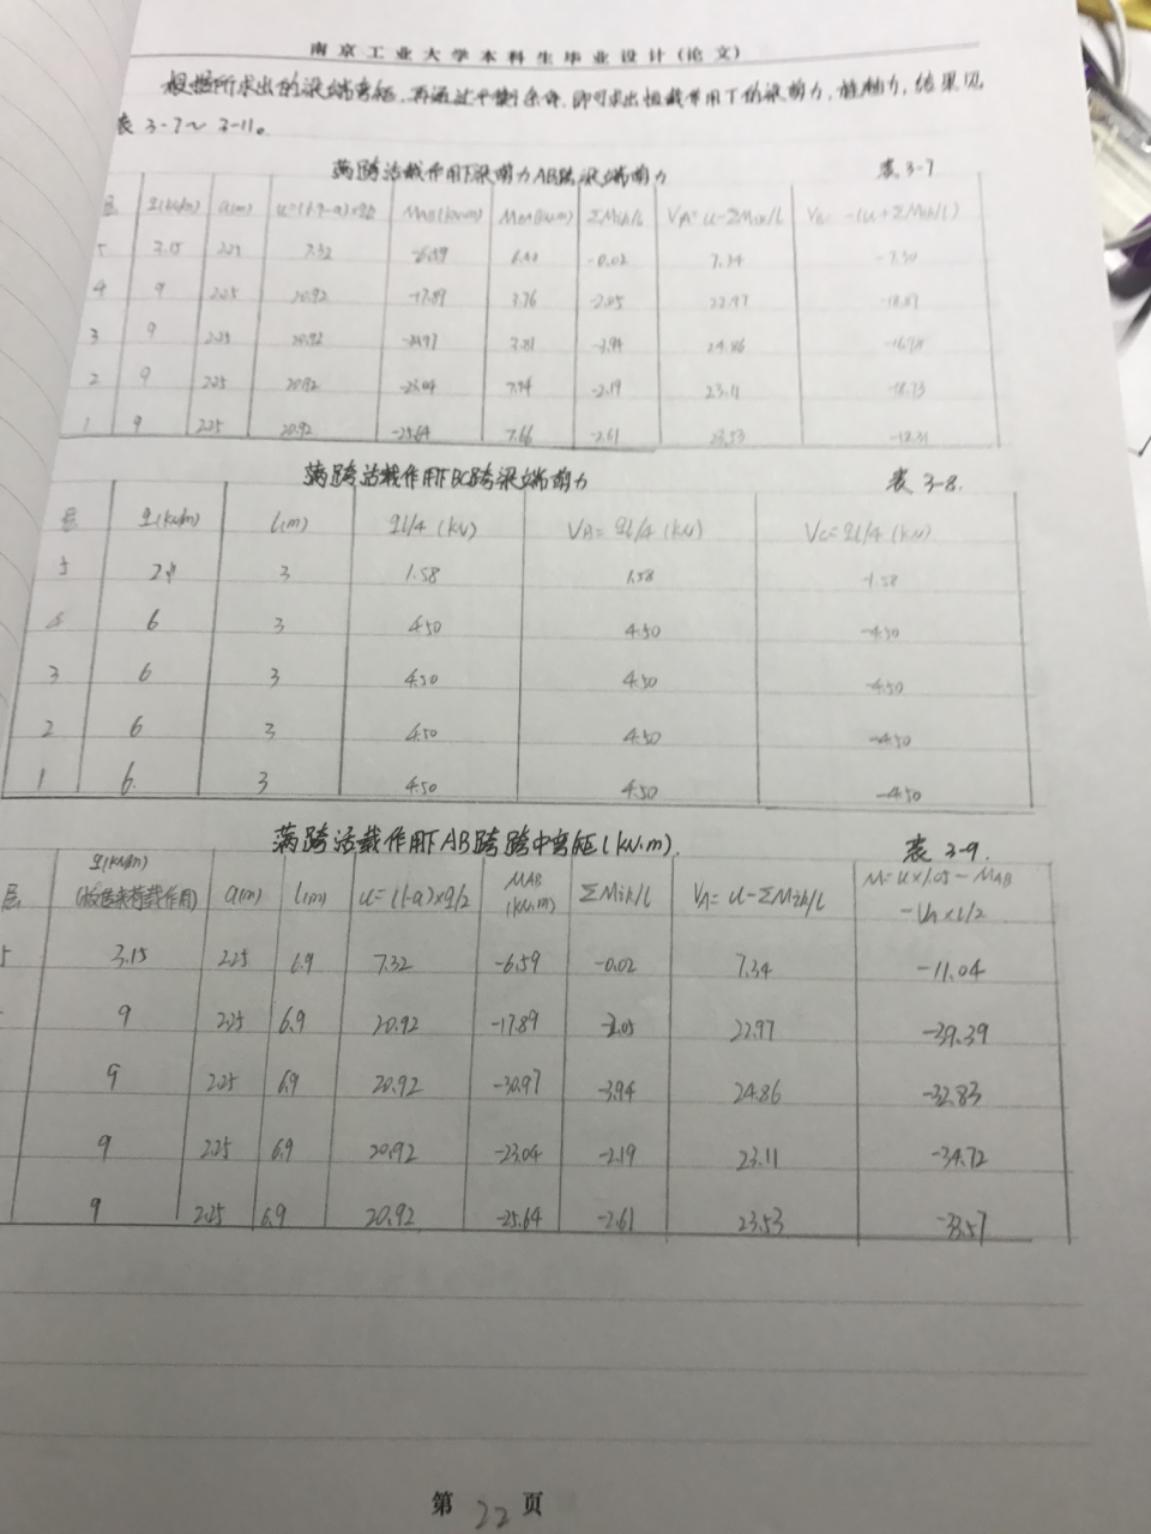 南京工业大学本科生毕业设计(论文)
根据所求出的梁端弯矩,再通过平衡条件,即可求出恒载作用下的梁剪力,柱轴力,结果见
表3-7~3-11。
满跨活载作用下梁剪力AB跨梁端剪力 表3-7
层 q(kN/m) a(m) u=(6.9-a)×q/2 MAB(kN·m) MBA(kN·m) ΣMik/L VA=u-ΣMik/L VB=-(u+ΣMik/L)
5 3.15 2.25 7.32 -6.59 -0.02 7.34
4 9 2.25 20.92 -17.89 -2.05 22.97 -18.87
3 9 2.25 20.92 -3.94 24.86 -16.98
2 9 2.25 20.92 -23.04 7.94 -2.19 23.11 -18.73
1 9 2.25 20.92 -25.64 7.66 -2.61 23.53 -18.31
满跨活载作用下BC跨梁端剪力 表3-8.
层 q(kN/m) l(m) ql/4(kN) VB=ql/4(kN) VC=ql/4(kN)
5 2.1 3 1.58 1.58 -1.58
6 3 4.50 4.50 -4.50
3 6 3 4.50 4.50 -4.50
2 6 3 4.50 4.50 -4.50
1 6. 3 4.50 4.50 -4.50
满跨活载作用下AB跨跨中弯矩(kN·m). 表3-9.
层 q(kN/m) (板传来荷载作用) a(m) l(m) u=(l-a)×q/2 MAB(kN·m) ΣMik/L VA=u-ΣMik/L M=u×1.05-MAB-VA×L/2
5 3.15 2.25 6.9 7.32 -6.59 -0.02 7.34 -11.04
9 2.25 6.9 20.92 -17.89 -2.05 22.97 -39.39
9 2.25 6.9 20.92 -30.97 -3.94 24.86 -32.83
9 2.25 6.9 20.92 -23.04 -2.19 23.11 -34.72
9 2.25 6.9 20.92 -25.64 -2.61 23.53 -33.57
第22页